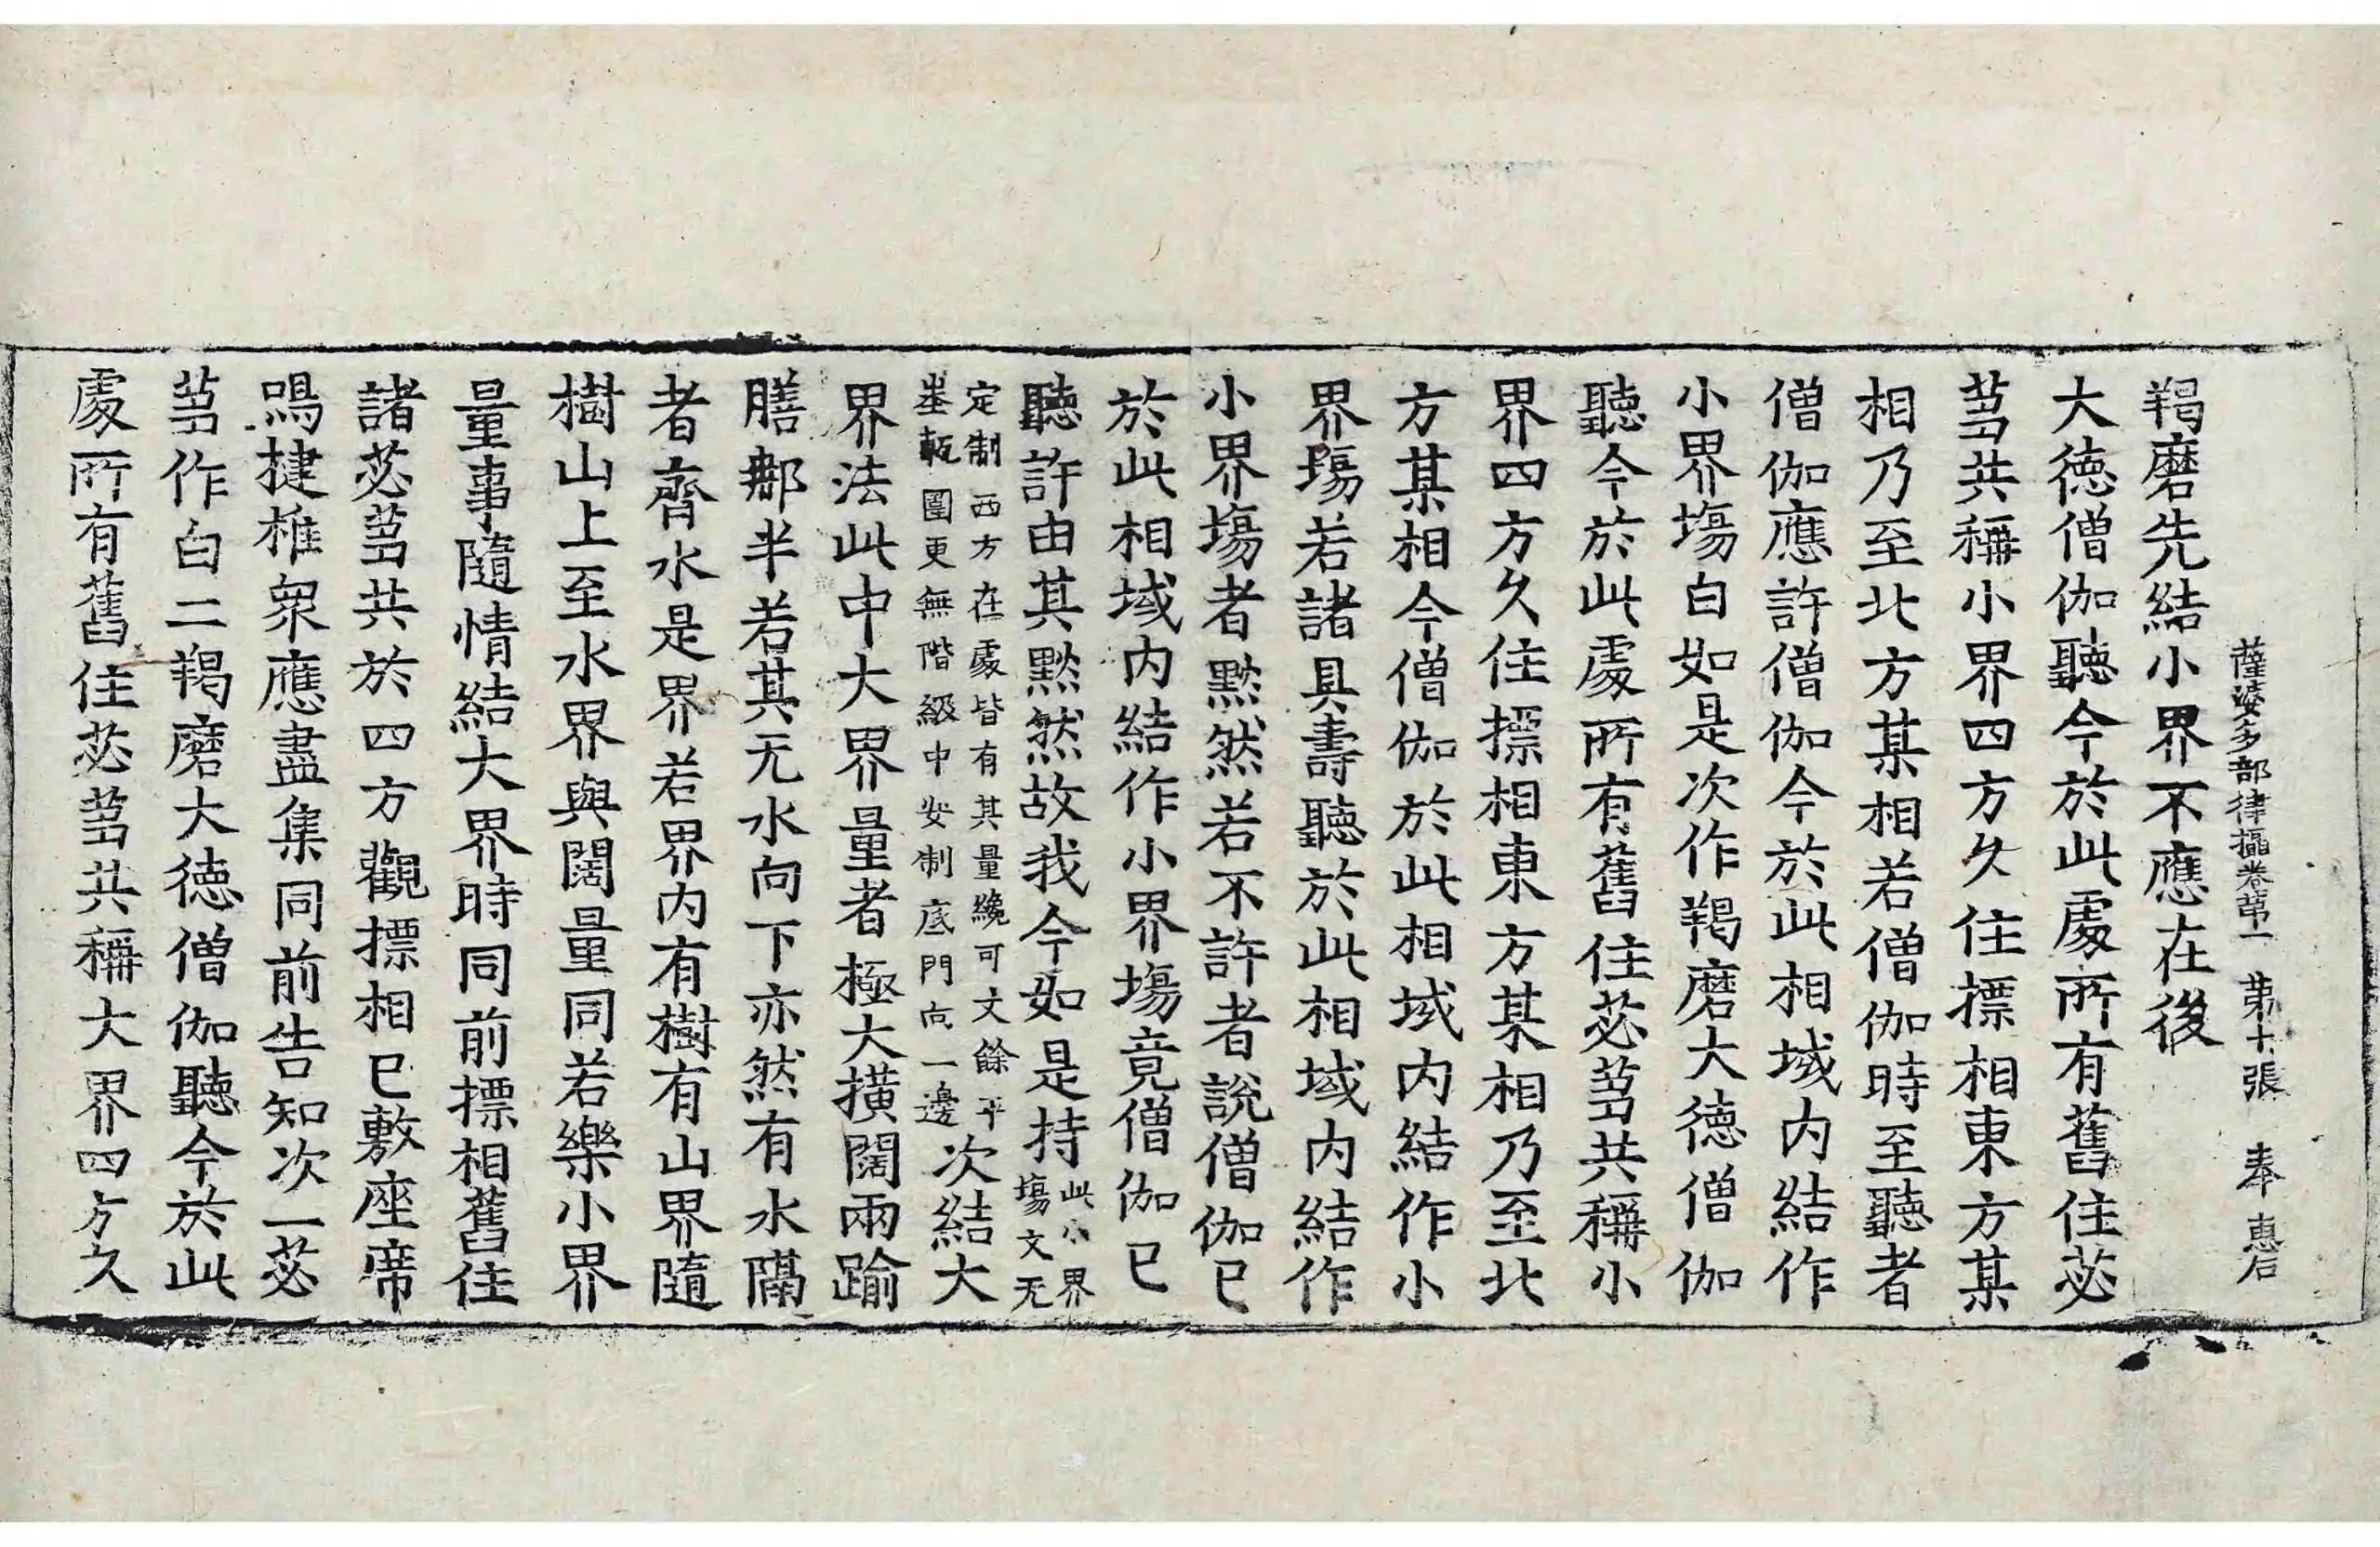 薩婆多部律攝卷第一　第十張　奉　惠石
羯磨先結小界不應在後
大徳僧伽聽今於此處所有舊住苾
蒭共稱小界四方久住摽相東方某
相乃至北方某相若僧伽時至聽者
僧伽應許僧伽今於此相域内結作
小界塲白如是次作羯磨大徳僧伽
聽今於此處所有舊住苾蒭共稱小
界四方久住摽相東方某相乃至北
方某相今僧伽於此相域内結作小
界塲若諸具壽聽於此相域内結作
小界塲者默然若不許者說僧伽已
於此相域内結作小界塲竟僧伽已
聽許由其默然故我今如是持此小界塲文无
定制西方在處皆有其量纔可丈餘平壘甎圍更無階級中安制底門向一邊次結大
界法此中大界量者極大撗闊兩踰
膳那半若其无水向下亦然有水隔
者齊水是界若界内有樹有山界隨
樹山上至水界與闊量同若樂小界
量事隨情結大界時同前摽相舊住
諸苾蒭共於四方觀摽相已敷座席
鳴揵椎衆應盡集同前告知次一苾
蒭作白二羯磨大徳僧伽聽今於此
處所有舊住苾蒭共稱大界四方久